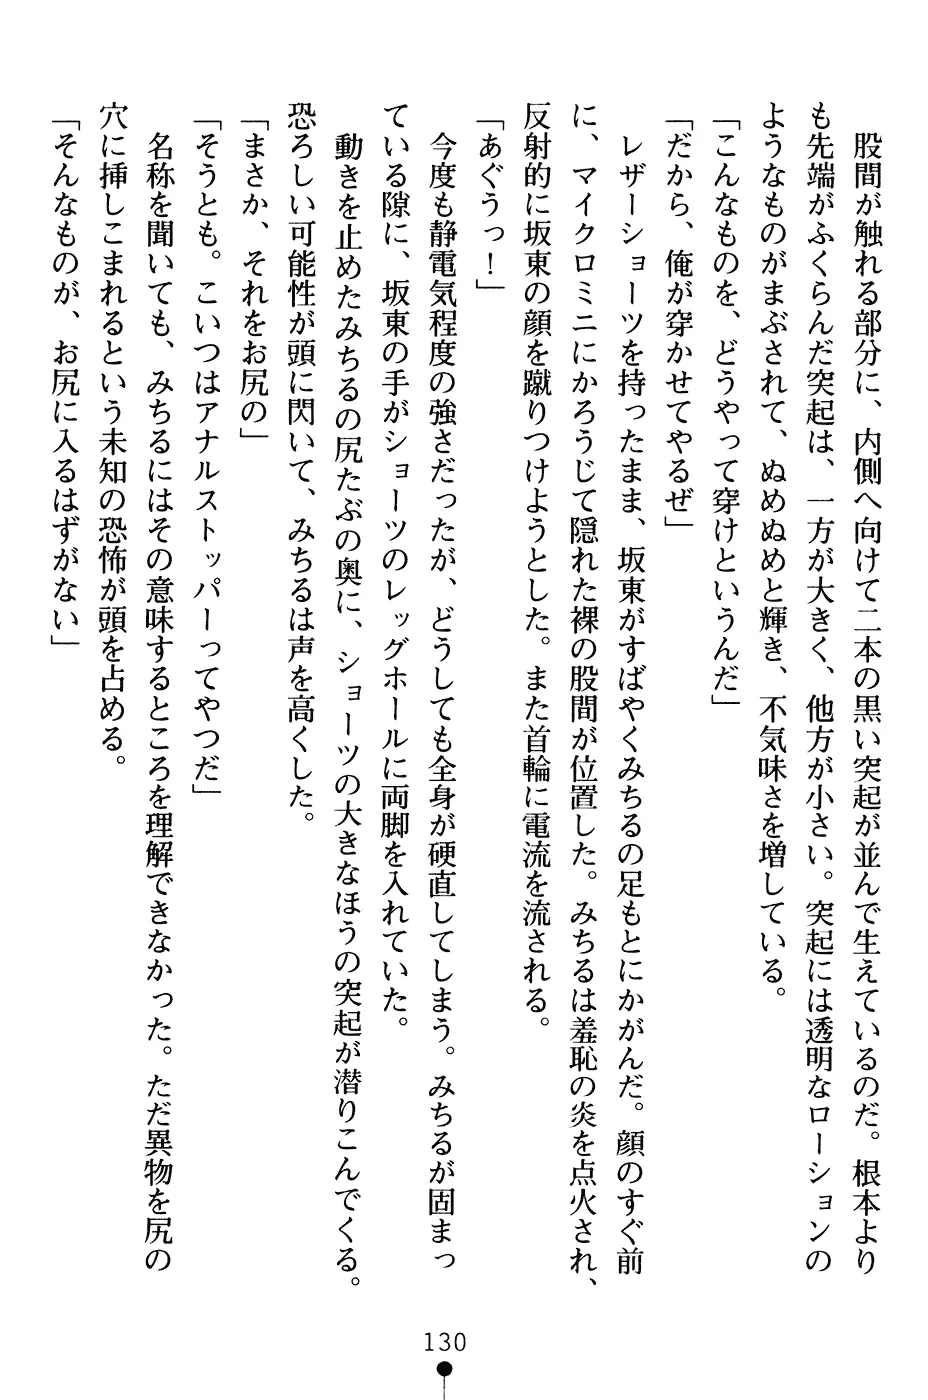 股間が触れる部分に、内側へ向けて二本の黒い突起が並んで生えているのだ。根本より
も先端がふくらんだ突起は、一方が大きく、他方が小さい。突起には透明なローションの
ようなものがまぶされて、ぬめぬめと輝き、不気味さを増している。
「こんなものを、どうやって穿けというんだ」
「だから、俺が穿かせてやるぜ」
レザーショーツを持ったまま、坂東がすばやくみちるの足もとにかがんだ。顔のすぐ前
に、マイクロミニにかろうじて隠れた裸の股間が位置した。みちるは羞恥の炎を点火され、
反射的に坂東の顔を蹴りつけようとした。また首輪に電流を流される。
「あぐうっ！」
今度も静電気程度の強さだったが、どうしても全身が硬直してしまう。みちるが固まっ
ている隙に、坂東の手がショーツのレッグホールに両脚を入れていた。
動きを止めたみちるの尻たぶの奥に、ショーツの大きなほうの突起が潜りこんでくる。
恐ろしい可能性が頭に閃いて、みちるは声を高くした。
「まさか、それをお尻の」
「そうとも。こいつはアナルストッパーってやつだ」
名称を聞いても、みちるにはその意味するところを理解できなかった。ただ異物を尻の
穴に挿しこまれるという未知の恐怖が頭を占める。
「そんなものが、お尻に入るはずがない」
130